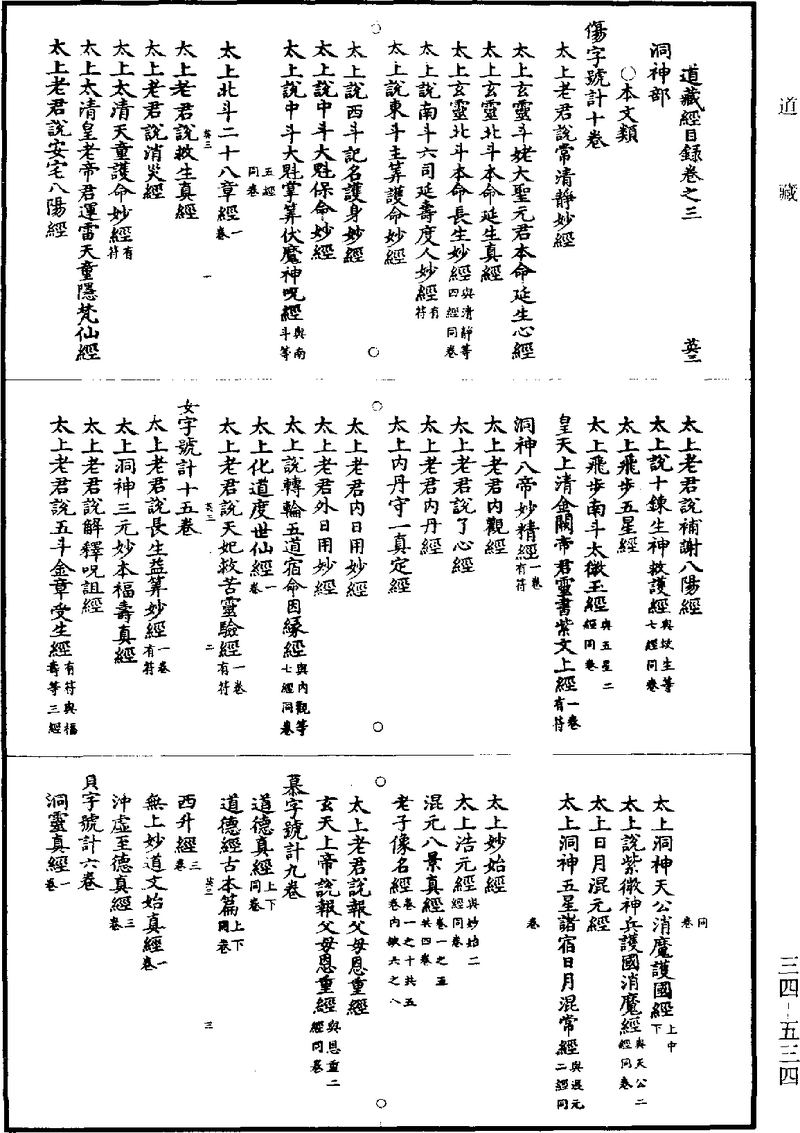 道藏
道藏經目錄卷之三
英三
洞神部
○本文類
傷字號計十卷
太上老君說常清靜妙經
太上玄靈斗姥大聖元君本命延生心經
太上玄靈北斗本命延生真經
太上玄靈北斗本命長生妙經與清靜等四經同卷
太上說南斗六司延壽度人妙經有符
太上說東斗主筭護命妙經
太上說西斗記名護身妙經
太上說中斗大魁保命妙經
太上說中斗大魁掌筭伏魔神呪經與南斗等
五經同卷
太上北斗二十八章經一卷
英三 一
太上老君說救生真經
太上老君說消災經
太上太清天童護命妙經有符
太上太清皇老帝君運雷天童隱梵仙經
太上老君說安宅八陽經
太上老君說補謝八陽經
太上說十鍊生神救護經與救生等七經同卷
太上飛步五星經
太上飛步南斗太微玉經與五星二經同卷
皇天上清金闕帝君靈書紫文上經一卷有符
洞神八帝妙精經一卷有符
太上老君內觀經
太上老君說了心經
太上老君內丹經
太上內丹守一真定經
太上老君內日用妙經
太上老君外日用妙經
太上說轉輪五道宿命因緣經與內觀等七經同卷
太上化道度世仙經一卷
太上老君說天妃救苦靈驗經一卷有符
英三 二
女字號計十五卷
太上老君說長生益筭妙經一卷有符
太上洞神三元妙本福壽真經
太上老君說解釋呪詛經
太上老君說五斗金章受生經有符與福壽等三經
同卷
太上洞神天公消魔護國經上中下
太上說紫微神兵護國消魔經與天公二經同卷
太上日月混元經
太上洞神五星諸宿日月混常經與混元二經同
卷
太上妙始經
太上浩元經與妙始二經同卷
混元八景真經卷一之五共四卷
老子像名經卷一之十共五卷內缺六之八
太上老君說報父母恩重經
玄天上帝說報父母恩重經與恩重二經同卷
慕字號計九卷
道德真經上下同卷
道德經古本篇上下同卷
英三 三
西升經三卷
無上妙道文始真經一卷
沖虛至德真經三卷
貝字號計六卷
洞靈真經一卷
三四-五三四